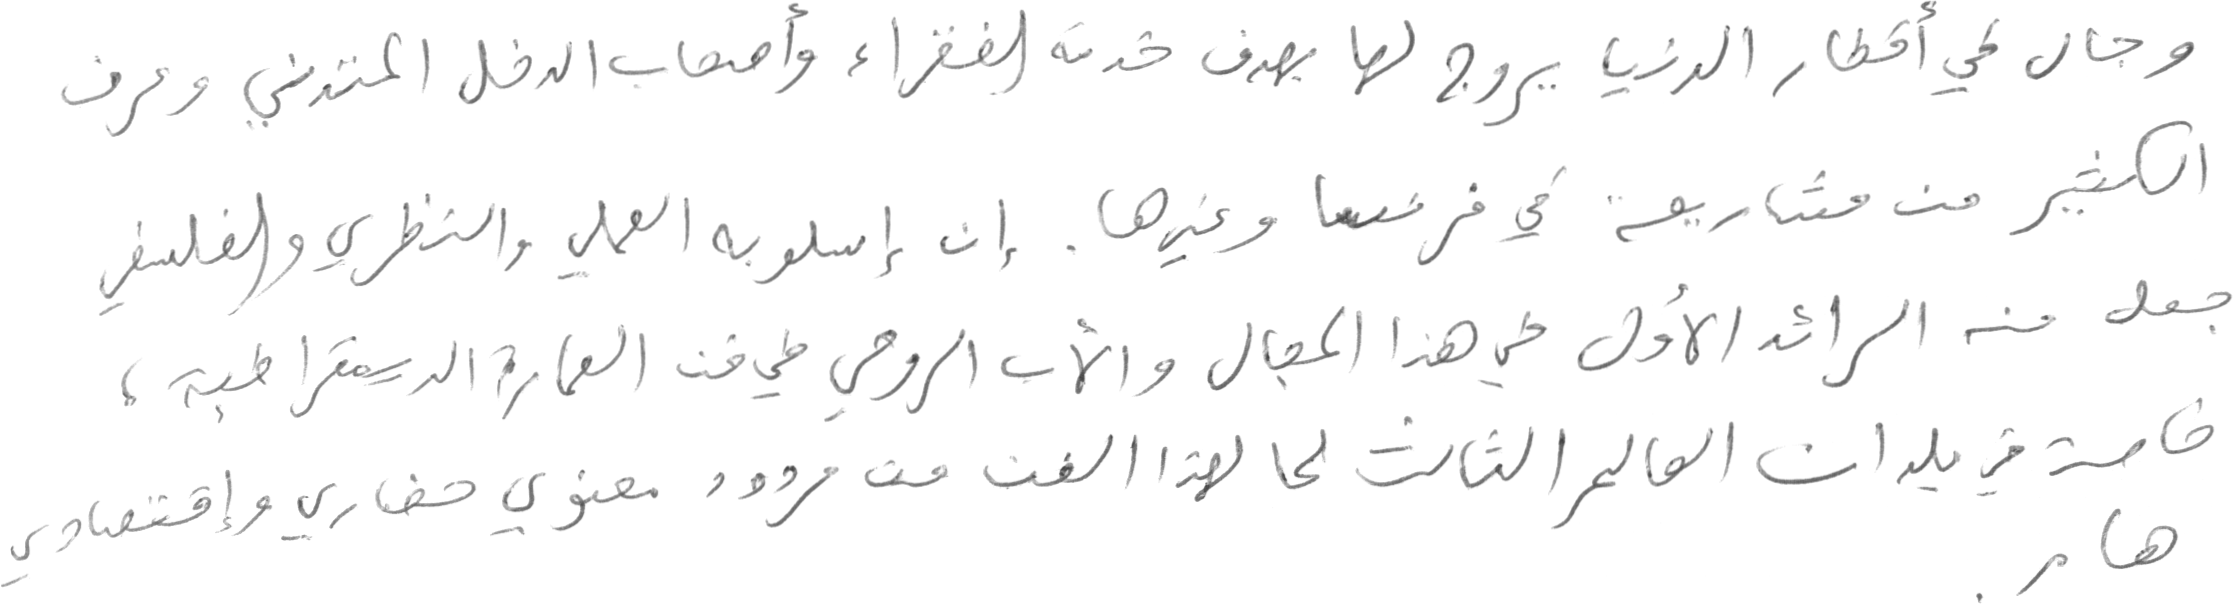 وجال في أقطار الدنيا يروج لها بهدف خدمة الفقراء وأصحاب الدخل المتدني وعرف
الكثير من مشاريعه في فرنسا وغيرها. إن إسلوبه العملي والنظري والفلسفي
جعل منه الرائد الأول في هذا المجال والأب الروحي في فن العمارة الديمقراطية،
خاصة في بلدان العالم الثالث لما لهذا الفن من مردود معنوي حضاري وإقتصادي
هام.